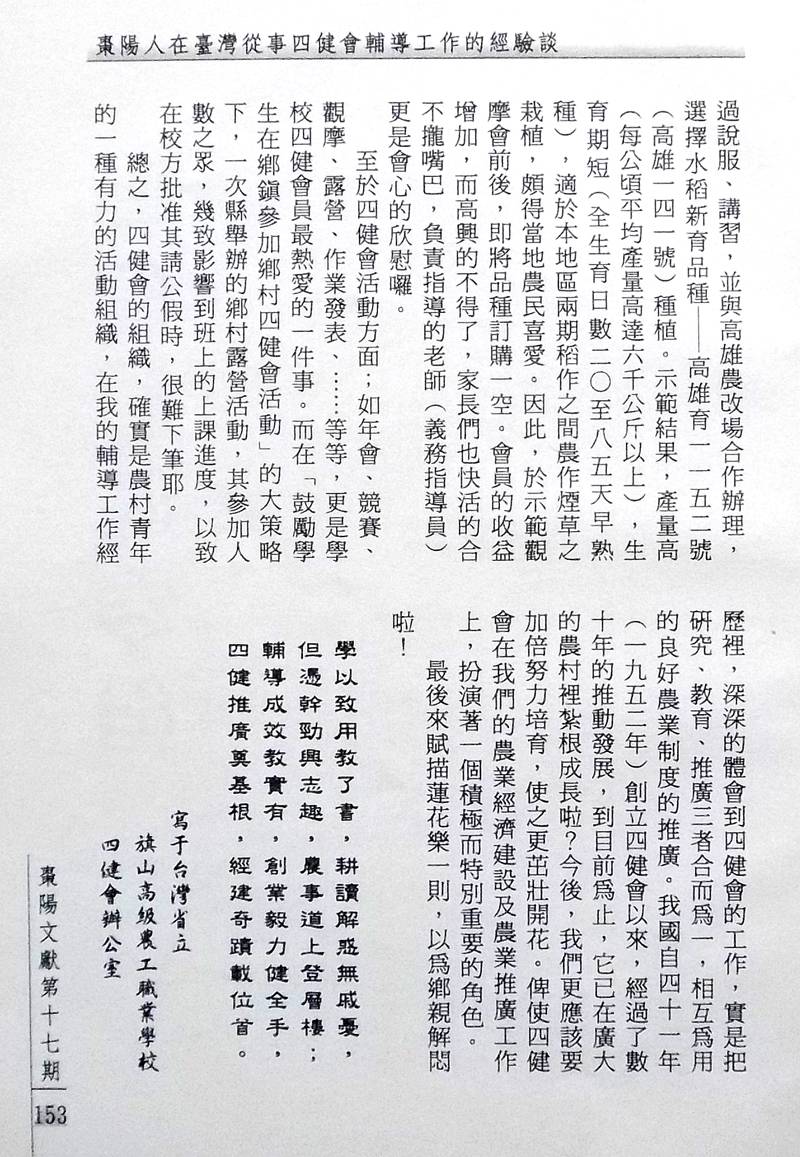 棗陽人在臺灣從事四健會輔導工作的經驗談
過說服、講習，並與高雄農改場合作辦理，
選擇水稻新育品種——高雄育一一五二號
（高雄一四一號）種植。示範結果，產量高
（每公頃平均產量高達六千公斤以上），生
育期短（全生育日數二〇至八五天早熟
種），適於本地區兩期稻作之間農作煙草之
栽植，頗得當地農民喜愛。因此，於示範觀
摩會前後，即將品種訂購一空。會員的收益
增加，而高興的不得了，家長們也快活的合
不攏嘴巴，負責指導的老師（義務指導員）
更是會心的欣慰囉。
至於四健會活動方面；如年會、競賽、
觀摩、露營、作業發表、……等等，更是學
校四健會員最熱愛的一件事。而在「鼓勵學
生在鄉鎮參加鄉村四健會活動」的大策略
下，一次縣舉辦的鄉村露營活動，其參加人
數之眾，幾致影響到班上的上課進度，以致
在校方批准其請公假時，很難下筆耶。
總之，四健會的組織，確實是農村青年
的一種有力的活動組織，在我的輔導工作經
歷裡，深深的體會到四健會的工作，實是把
研究、教育、推廣三者合而為一，相互為用
的良好農業制度的推廣。我國自四十一年
（一九五二年）創立四健會以來，經過了數
十年的推動發展，到目前為止，它已在廣大
的農村裡紮根成長啦？今後，我們更應該要
加倍努力培育，使之更茁壯開花。俾使四健
會在我們的農業經濟建設及農業推廣工作
上，扮演著一個積極而特別重要的角色。
最後來賦描蓮花樂一則，以為鄉親解悶
啦！
學以致用教了書，耕讀解惑無戚憂，
但憑幹勁興志趣，農事道上登層樓；
輔導成效教實有，創業毅力健全手，
四健推廣奠基根，經建奇蹟載位首。
寫于台灣省立
旗山高級農工職業學校
四健會辦公室
棗陽文獻第十七期
153